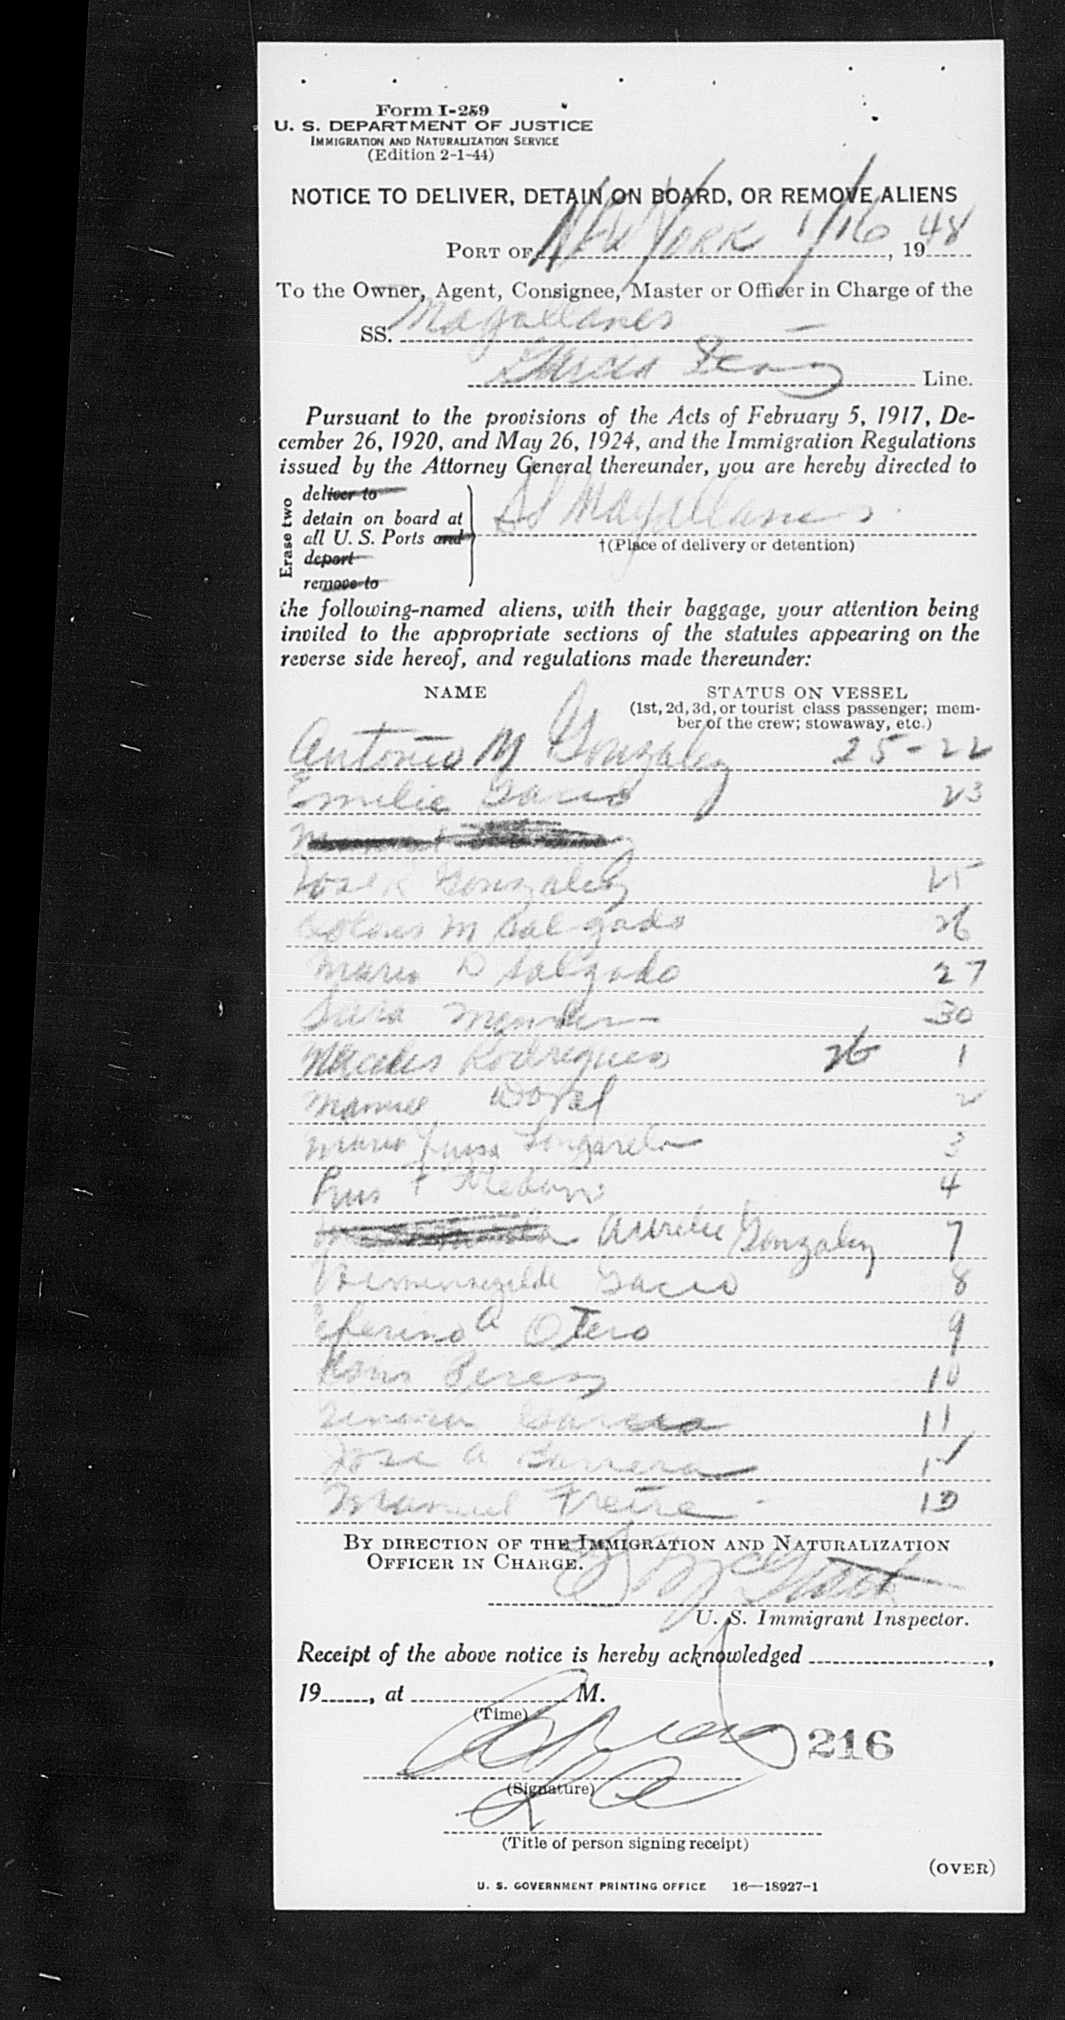 Form I-259
U. S. DEPARTMENT OF JUSTICE
IMMIGRATION AND NATURALIZATION SERVICE
(Edition 2-1-44)
NOTICE TO DELIVER, DETAIN ON BOARD, OR REMOVE ALIENS
PORT OF New York 1/16, 1948
To the Owner, Agent, Consignee, Master or Officer in Charge of the
SS. Magallanes
Garcia Line.
Pursuant to the provisions of the Acts of February 5, 1917, De-
cember 26, 1920, and May 26, 1924, and the Immigration Regulations
issued by the Attorney General thereunder, you are hereby directed to
Erase two
deliver to
detain on board at
all U. S. Ports and
deport
remove to
SS Magallanes
†(Place of delivery or detention)
the following-named aliens, with their baggage, your attention being
invited to the appropriate sections of the statutes appearing on the
reverse side hereof, and regulations made thereunder:
NAME STATUS ON VESSEL
(1st, 2d, 3d, or tourist class passenger; mem-
ber of the crew; stowaway, etc.)
Antonio M Gonzalez 25-22
Emilie 23
Jose R Gonzalez 25
M Salgado 26
Maria D Salgado 27
Sara 30
Rodriguez 26 1
Manuel Doval 2
Maria 3
4
Aurelie Gonzalez 7
8
A Otero 9
Perez 10
Garcia 11
Jose A Barrera
Manuel Freire
BY DIRECTION OF THE IMMIGRATION AND NATURALIZATION
OFFICER IN CHARGE.
U. S. Immigrant Inspector.
Receipt of the above notice is hereby acknowledged ,
19 , at M.
(Time)
216
(Signature)
(Title of person signing receipt)
(OVER)
U. S. GOVERNMENT PRINTING OFFICE 16—18927-1